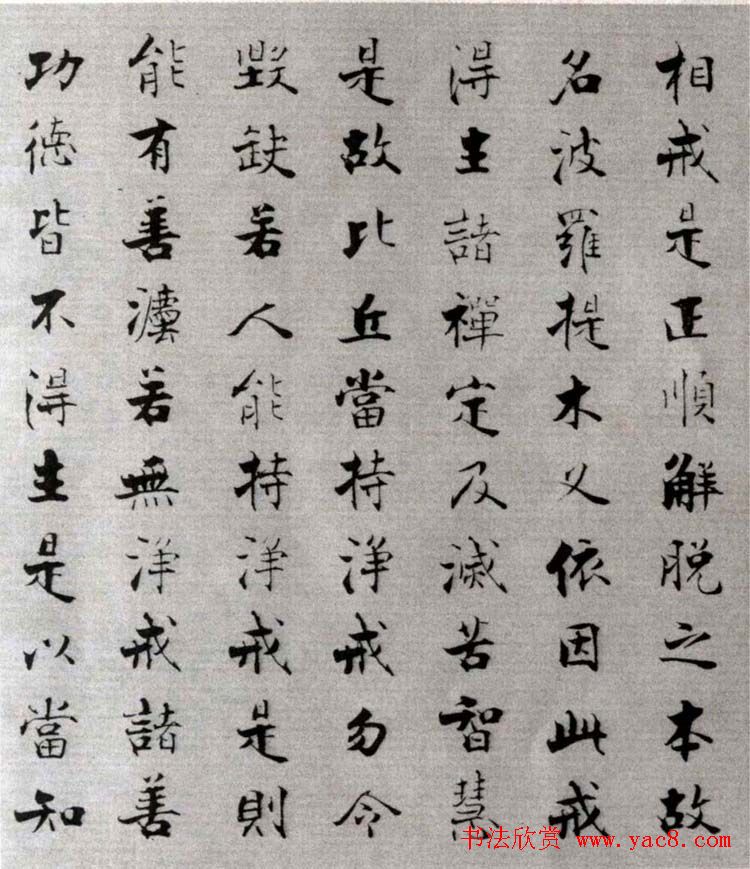 相戒是正順解脫之本故
名波羅提木叉依因此戒
得生諸禪定及滅苦智慧
是故比丘當持淨戒勿令
毀缺若人能持淨戒是則
能有善法若無淨戒諸善
功德皆不得生是以當知
书法欣赏 www.yac8.com